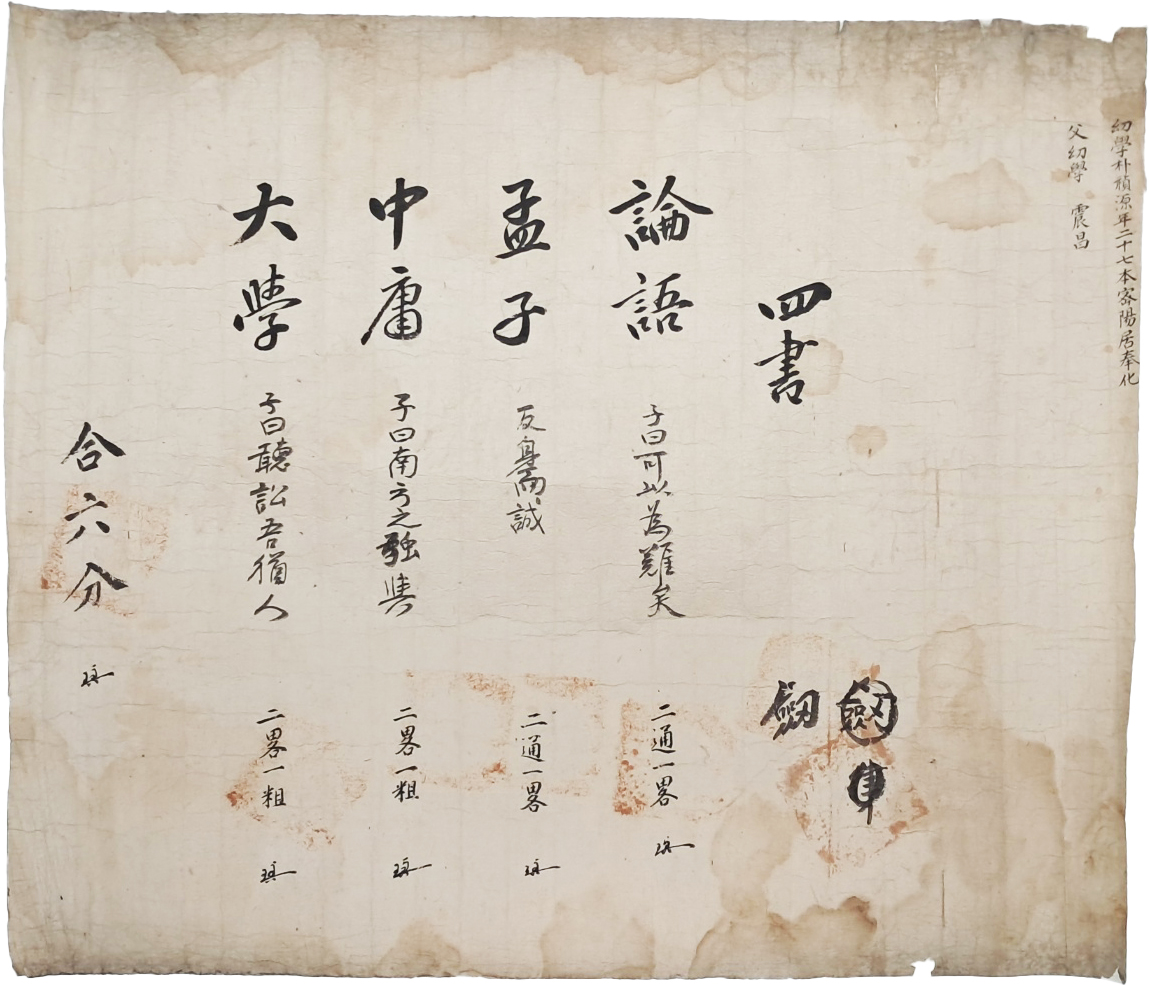 幼學朴禎源年二十七本密陽居奉化
父幼學 震昌
四書
論語 子曰可以為難矣 二通一畧
孟子 反身而誠 二通一畧
中庸 子曰南方之强與 二畧一粗
大學 子曰聽訟吾猶人 二畧一粗
合六分